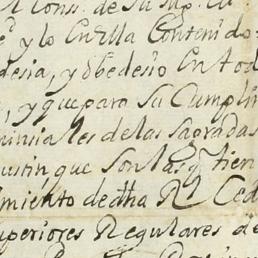 Cons. de Su Mag.
y lo en ella Contenido
desia, y obedesio en tod
, y que para Su Cumplim
minsiales de las Sagradas
ustin que son las q tien
imiento de dha Rl Ced
uperiores Regulares de